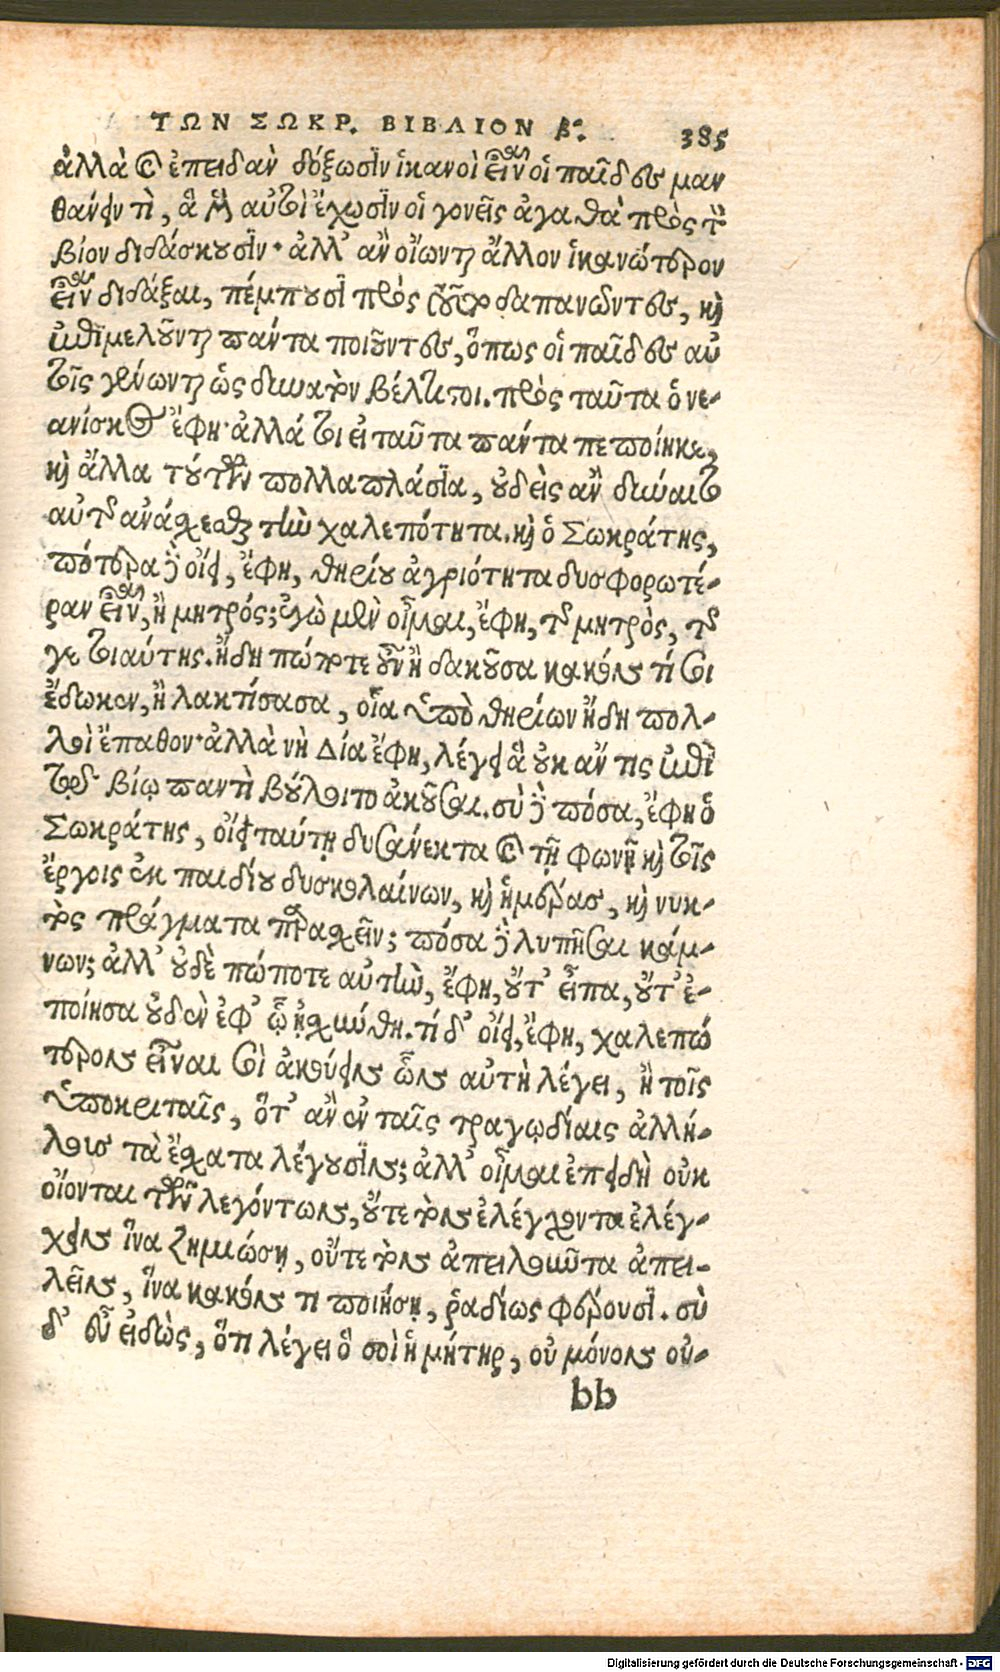 ΤΩΝ ΣΩΚΡ. ΒΙΒΛΙΟΝ β⁰. 385
ἀλλὰ καὶ ἐπειδὰν δόξωσιν ἱκανοὶ εἶναι οἱ παῖδες μαν
θάνειν τὶ, ἃ μὲν αὐτοὶ ἔχωσιν οἱ γονεῖς ἀγαθὰ πρὸς τὸν
βίον διδάσκουσιν· ἀλλ' ἂν οἴωνται ἄλλον ἱκανώτερον
εἶναι διδάξαι, πέμπουσι πρὸς τοῦτον δαπανῶντες, καὶ
ἐπιμελοῦνται πάντα ποιοῦντες, ὅπως οἱ παῖδες αὐ
τοῖς γένωνται ὡς δυνατὸν βέλτιστοι. πρὸς ταῦτα ὁ νε-
ανίσκος ἔφη· ἀλλά τοι εἰ ταῦτα πάντα πεποίηκε,
καὶ ἄλλα τούτων πολλαπλάσια, οὐδεὶς ἂν δύναιτο
αὐτῆς ἀνάσχεσθαι τὴν χαλεπότητα. καὶ ὁ Σωκράτης,
πότερα δὲ οἴει, ἔφη, θηρίου ἀγριότητα δυσφορωτέ-
ραν εἶναι, ἢ μητρός; ἐγὼ μὲν οἶμαι, ἔφη, τῆς μητρὸς, τῆς
γε τοιαύτης. ἤδη πώποτε οὖν ἢ δακοῦσα κακόν τί σοι
ἔδωκεν, ἢ λακτίσασα, οἷα ὑπὸ θηρίων ἤδη πολ-
λοὶ ἔπαθον· ἀλλὰ νὴ Δία ἔφη, λέγει ἃ οὐκ ἄν τις ἐπὶ
τῷ βίῳ παντὶ βούλοιτο ἀκοῦσαι. σὺ δὲ πόσα, ἔφη ὁ
Σωκράτης, οἴει ταύτῃ δυσάνεκτα καὶ τῇ φωνῇ καὶ τοῖς
ἔργοις ἐκ παιδίου δυσκολαίνων, καὶ ἡμέρας, καὶ νυκ-
τὸς πράγματα παρασχεῖν; πόσα δὲ λυπῆσαι κάμ-
νων; ἀλλ' οὐδὲ πώποτε αὐτὴν, ἔφη, οὔτ' εἶπα, οὔτ' ἐ-
ποίησα οὐδὲν ἐφ' ᾧ ᾐσχύνθη. τί δ' οἴει, ἔφη, χαλεπώ
τερον εἶναι σοὶ ἀκούειν ὧν αὐτὴ λέγει, ἢ τοῖς
ὑποκριταῖς, ὅτ' ἂν ἐν ταῖς τραγῳδίαις ἀλλή-
λοις τὰ ἔσχατα λέγουσιν; ἀλλ' οἶμαι ἐπειδὴ οὐκ
οἴονται τῶν λεγόντων, οὔτε τὸν ἐλέγχοντα ἐλέγ-
χειν ἵνα ζημιώσῃ, οὔτε τὸν ἀπειλοῦντα ἀπει-
λεῖν, ἵνα κακόν τι ποιήσῃ, ῥαδίως φέρουσι. σὺ
δ' εὖ εἰδὼς, ὅτι λέγει ὅ σοι ἡ μήτηρ, οὐ μόνον οὐ-
bb
Digitalisierung gefördert durch die Deutsche Forschungsgemeinschaft - DFG